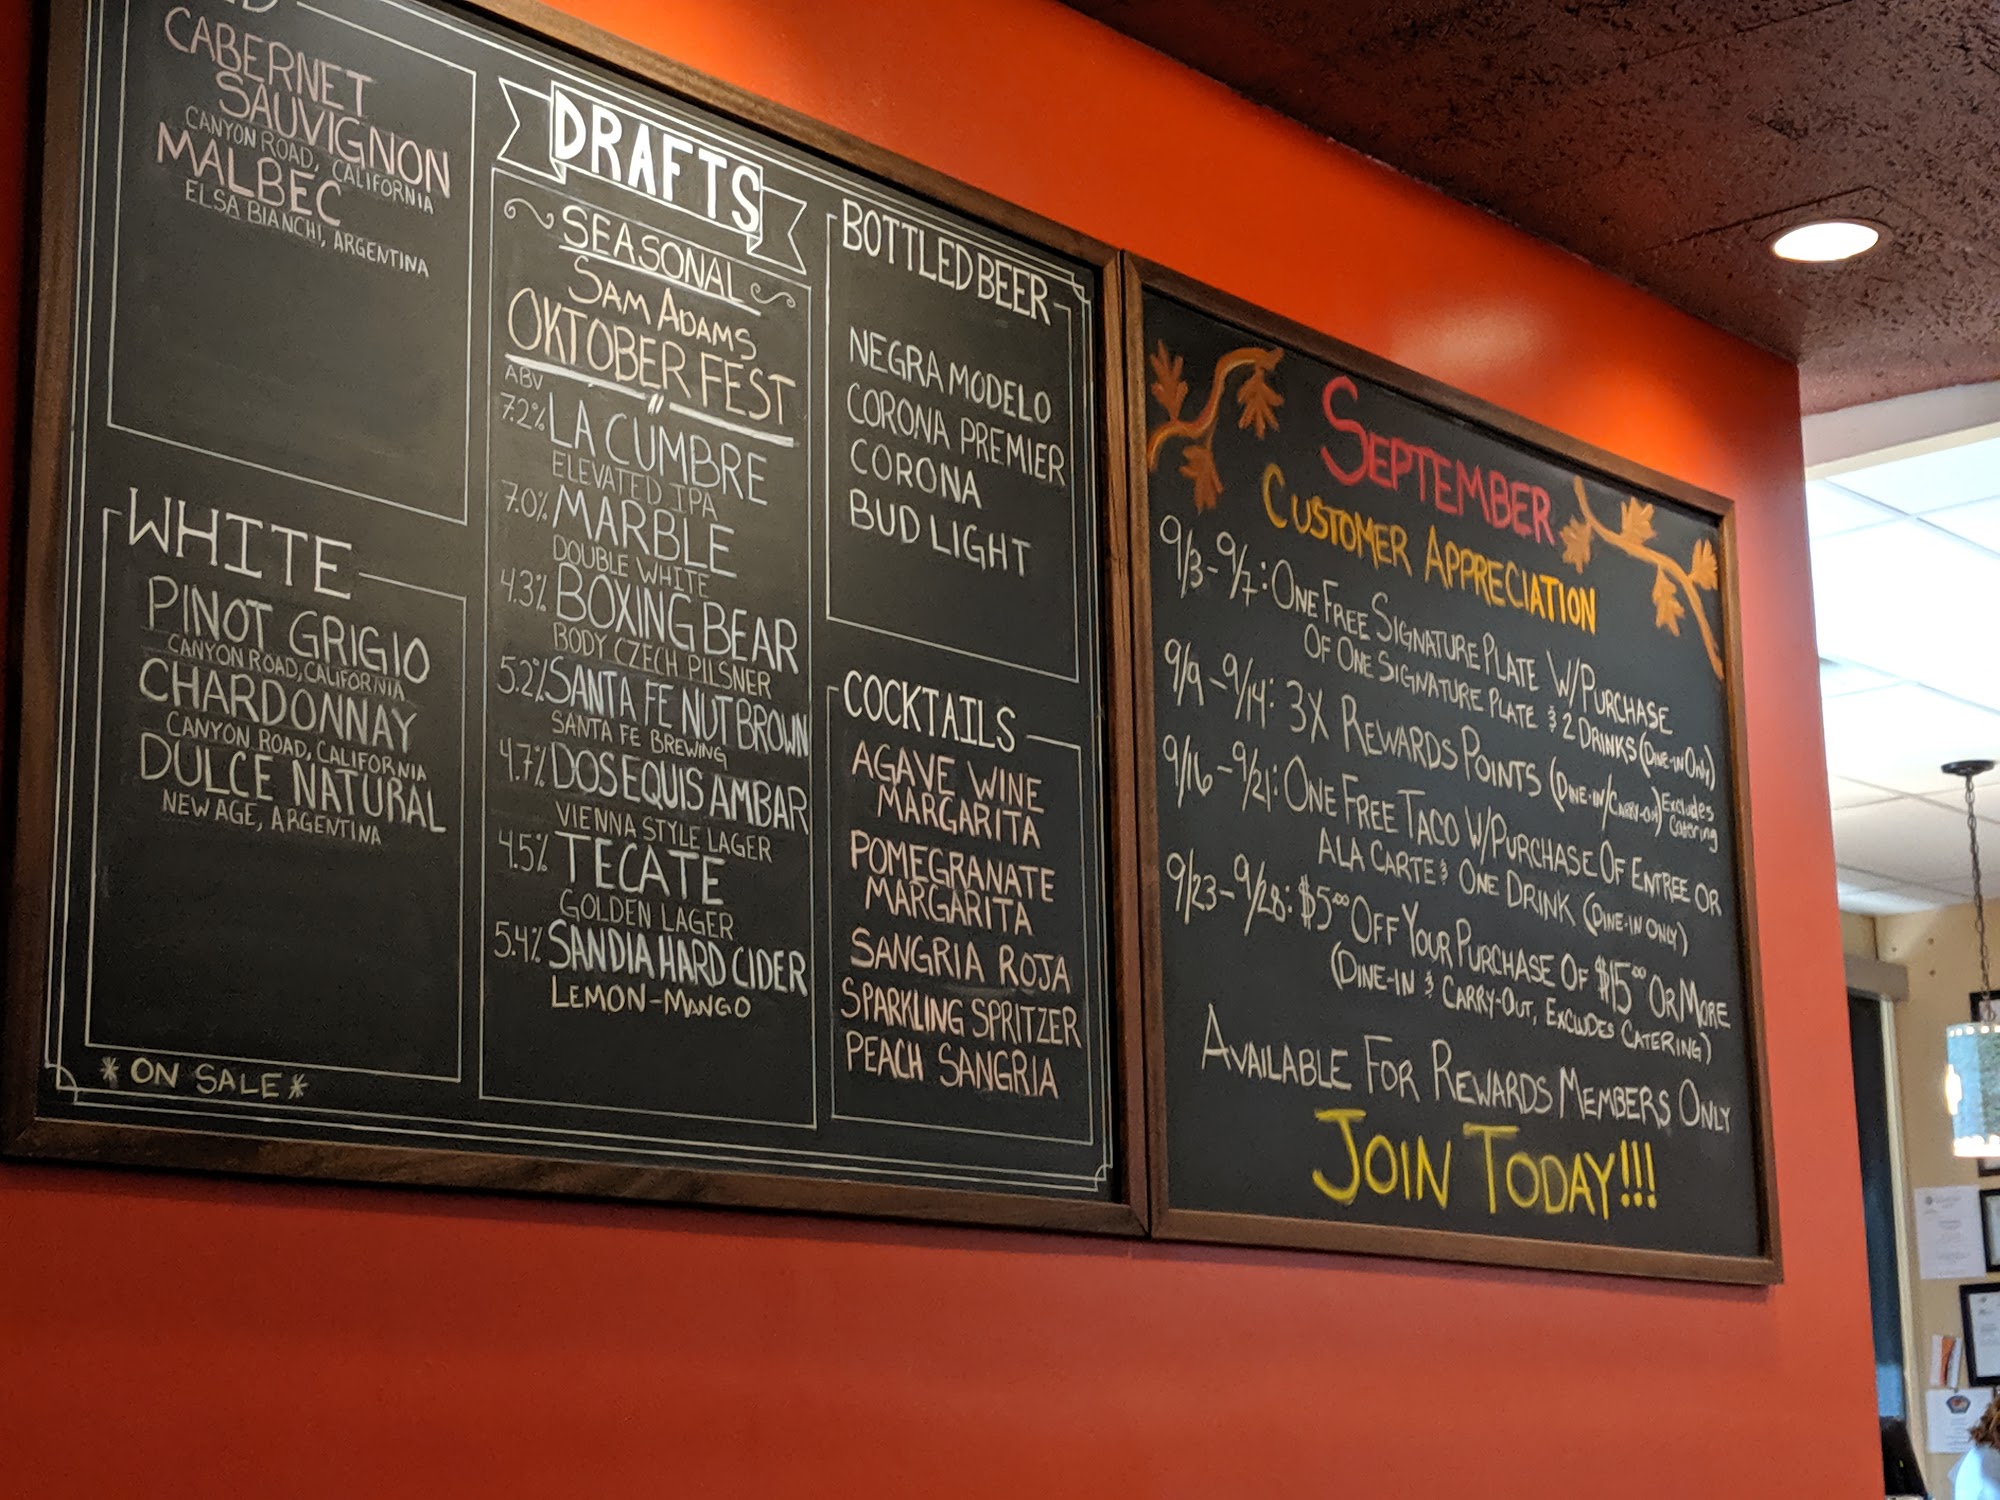 CABERNET
SAUVIGNON
CANYON ROAD, CALIFORNIA
MALBEC
ELSA BIANCHI, ARGENTINA
WHITE
PINOT GRIGIO
CANYON ROAD, CALIFORNIA
CHARDONNAY
CANYON ROAD, CALIFORNIA
DULCE NATURAL
NEW AGE, ARGENTINA
*ON SALE*
DRAFTS
SEASONAL
SAM ADAMS
OKTOBER FEST
ABV
7.2% LA CUMBRE
ELEVATED IPA
7.0% MARBLE
DOUBLE WHITE
4.3% BOXING BEAR
BODY CZECH PILSNER
5.2% SANTA FE NUT BROWN
SANTA FE BREWING
4.7% DOS EQUIS AMBAR
VIENNA STYLE LAGER
4.5% TECATE
GOLDEN LAGER
5.4% SANDIA HARD CIDER
LEMON-MANGO
BOTTLED BEER
NEGRA MODELO
CORONA PREMIER
CORONA
BUD LIGHT
COCKTAILS
AGAVE WINE
MARGARITA
POMEGRANATE
MARGARITA
SANGRIA ROJA
SPARKLING SPRITZER
PEACH SANGRIA
SEPTEMBER
CUSTOMER APPRECIATION
9/3-9/7: ONE FREE SIGNATURE PLATE W/PURCHASE
OF ONE SIGNATURE PLATE & 2 DRINKS (DINE-IN ONLY)
9/9-9/14: 3X REWARDS POINTS (DINE-IN/CARRY-OUT) Excludes
Catering
9/16-9/21: ONE FREE TACO W/PURCHASE OF ENTREE OR
ALA CARTE & ONE DRINK (DINE-IN ONLY)
9/23-9/28: $5.00 OFF YOUR PURCHASE OF $15.00 OR MORE
(DINE-IN & CARRY-OUT, EXCLUDES CATERING)
AVAILABLE FOR REWARDS MEMBERS ONLY
JOIN TODAY!!!